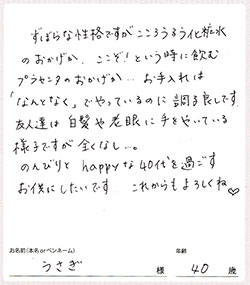 ずぼらな性格ですがこころうるう化粧水
のおかげか、ここぞ!という時に飲む
プラセンタのおかげか… お手入れは
「なんとなく」でやっているのに調子良しです。
友人達は白髪や老眼に手をやいている
様子ですが全くなし…。
のんびりと happyな40代を過ごす
お供にしたいです これからもよろしくね♡
お名前(本名orペンネーム) 年齢
うさぎ 様 40 歳